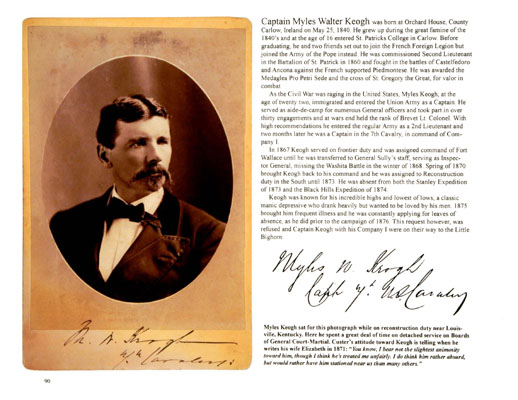 Captain Myles Walter Keogh was born at Orchard House, County
Carlow, Ireland on May 25, 1840. He grew up during the great famine of the
1840's and at the age of 16 entered St. Patricks College in Carlow. Before
graduating, he and two friends set out to join the French Foreign Legion but
joined the Army of the Pope instead. He was commissioned Second Lieutenant
in the Battalion of St. Patrick in 1860 and fought in the battles of Castelfedoro
and Ancona against the French supported Piedmontese. He was awarded the
Medaglea Pio Petri Sede and the cross of St. Gregory the Great, for valor in
combat.
As the Civil War was raging in the United States, Myles Keogh, at the
age of twenty two, immigrated and entered the Union Army as a Captain. He
served as aide-de-camp for numerous General officers and took part in over
thirty engagements and at wars end held the rank of Brevet Lt. Colonel. With
high recommendations he entered the regular Army as a 2nd Lieutenant and
two months later he was a Captain in the 7th Cavalry, in command of Com-
pany I.
In 1867 Keogh served on frontier duty and was assigned command of Fort
Wallace until he was transferred to General Sully's staff, serving as Inspec-
tor General, missing the Washita Battle in the winter of 1868. Spring of 1870
brought Keogh back to his command and he was assigned to Reconstruction
duty in the South until 1873. He was absent from both the Stanley Expedition
of 1873 and the Black Hills Expedition of 1874.
Keogh was known for his incredible highs and lowest of lows, a classic
manic depressive who drank heavily but wanted to be loved by his men. 1875
brought him frequent illness and he was constantly applying for leaves of
absence, as he did prior to the campaign of 1876. This request however, was
refused and Captain Keogh with his Company I were on their way to the Little
Bighorn.
Myles W. Keogh
Capt 7th US Cavalry
M. W. Keogh
7th Cavalry
Myles Keogh sat for this photograph while on reconstruction duty near Louis-
ville, Kentucky. Here he spent a great deal of time on detached service on Boards
of General Court-Martial. Custer's attitude toward Keogh is telling when he
writes his wife Elizabeth in 1871: "You know, I bear not the slightest animosity
toward him, though I think he's treated me unfairly. I do think him rather absurd,
but would rather have him stationed near us than many others."
90